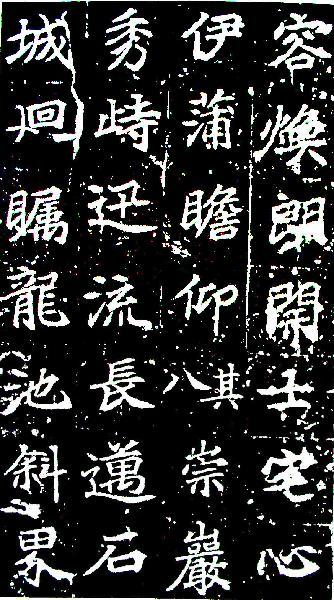 容煥朗開士宅心
伊蒲瞻仰其八崇巖
秀峙迅流長邁石
城迴矚龍池斜界